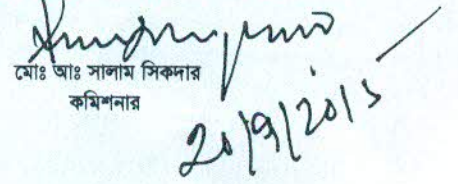 মোঃ আঃ সালাম সিকদার
কমিশনার
20/9/2015